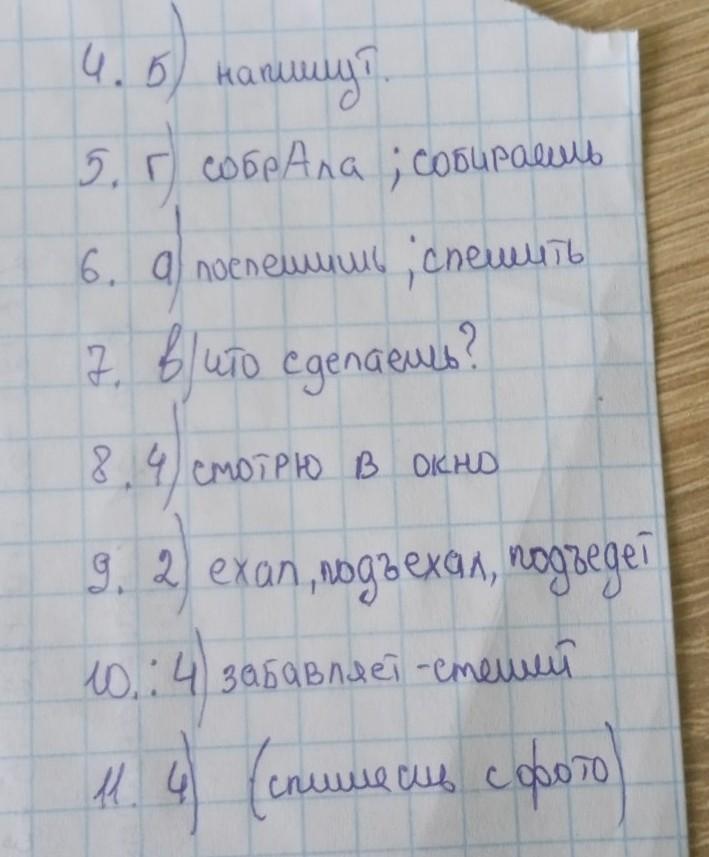 4. Б) напишут.
5. Г) собрАла ; собираешь
6. а) поспешишь ; спешить
7. в) что сделаешь?
8. 4) смотрю в окно
9. 2) ехал, подъехал, подъедет
10.: 4) забавляет - смешит
11. 4) (спишешь с фото)